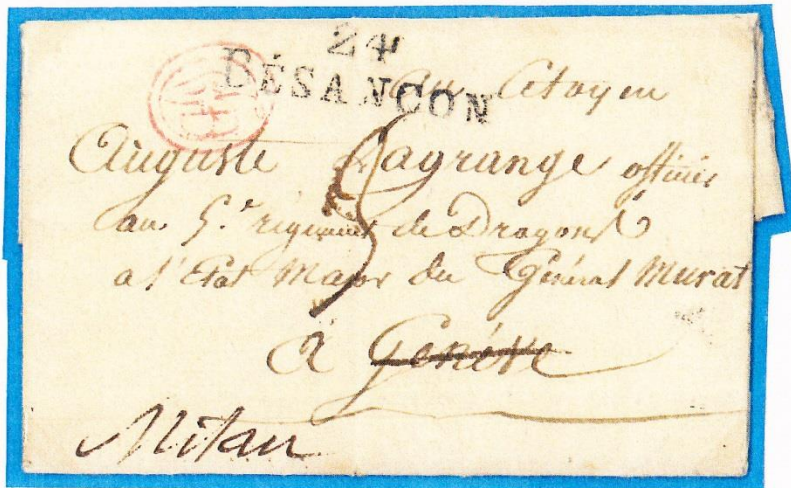 24
BÉSANCON
au Citoyen
Auguste Lagrange officier
au 5.e régiment de Dragons
a l'Etat Major du Général Murat
à Genéve
Milan